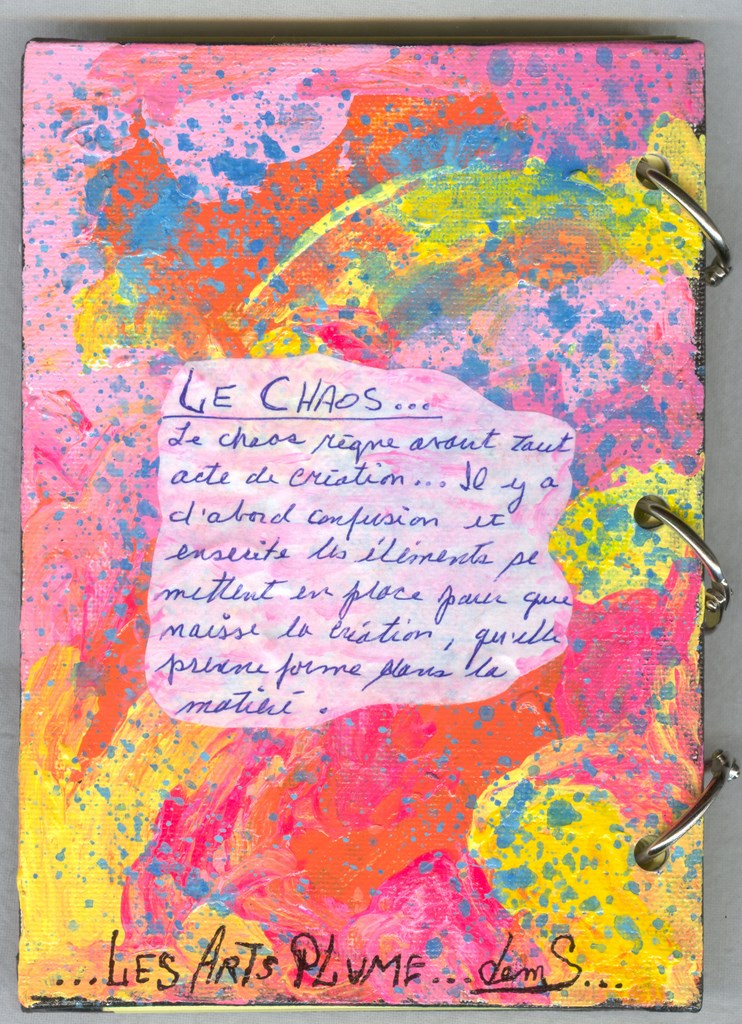 LE CHAOS...
Le chaos règne avant tout
acte de création... Il y a
d'abord confusion et
ensuite les éléments se
mettent en place pour que
naisse la création, qu'elle
prenne forme dans la
matière.
...LES ARTS PLUME...demS...